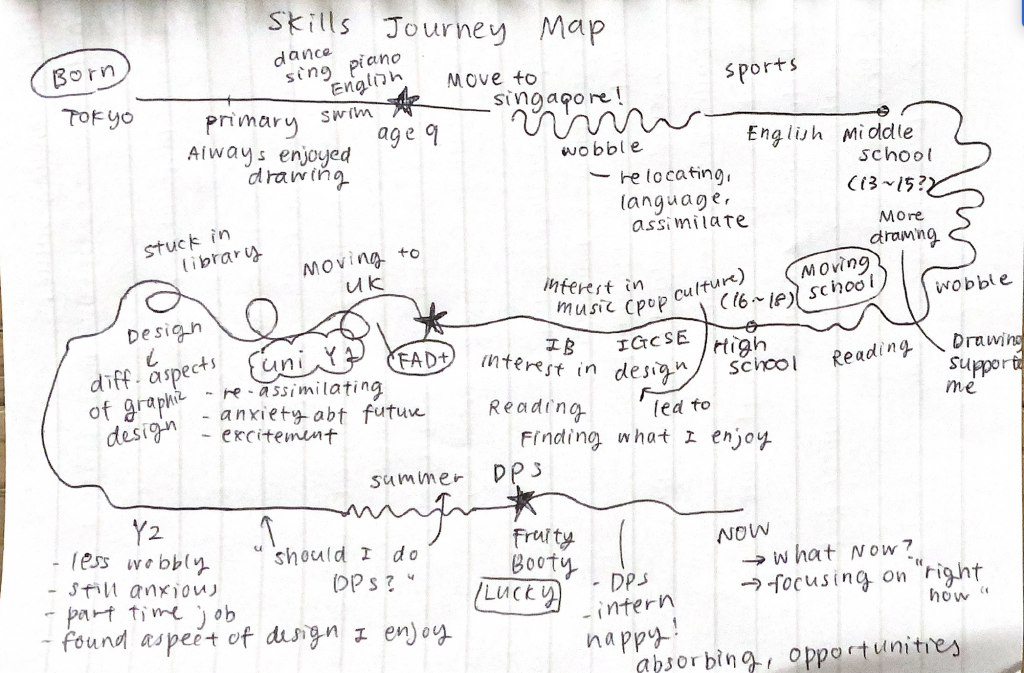 Skills Journey Map
Born
TOKYO
dance
sing piano
English
swim
primary
Always enjoyed
drawing
age 9
Move to
singapore!
wobble
– relocating,
language,
assimilate
sports
English
Middle
school
(13~15?)
More
drawing
wobble
Drawing
supporte
me
Moving
school
Reading
(16~18)
High
school
interest in
music (pop culture)
IB
IGCSE
interest in design
led to
Reading
Finding what I enjoy
FAD+
Moving to
UK
uni Y1
- re-assimilating
- anxiety abt future
- excitement
stuck in
library
Design
diff. aspects
of graphic
design
Y2
- less wobbly
- still anxious
- part time job
- found aspect of design I enjoy
"should I do
DPS?"
summer
DPS
Fruity
Booty
LUCKY
- DPS
- intern
happy!
absorbing, opportunities
NOW
→ what now?
→ focusing on "right
now"